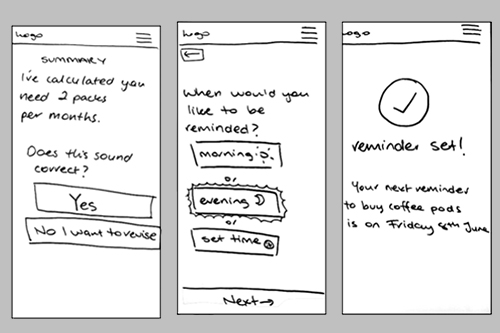 Logo
SUMMARY
I've calculated you
need 2 packs
per months.
Does this sound
correct?
Yes
No I want to revise
Logo
←
When would you
like to be
reminded?
morning
or
evening
or
set time
Next →
Logo
reminder set!
Your next reminder
to buy coffee pods
is on Friday 8th June